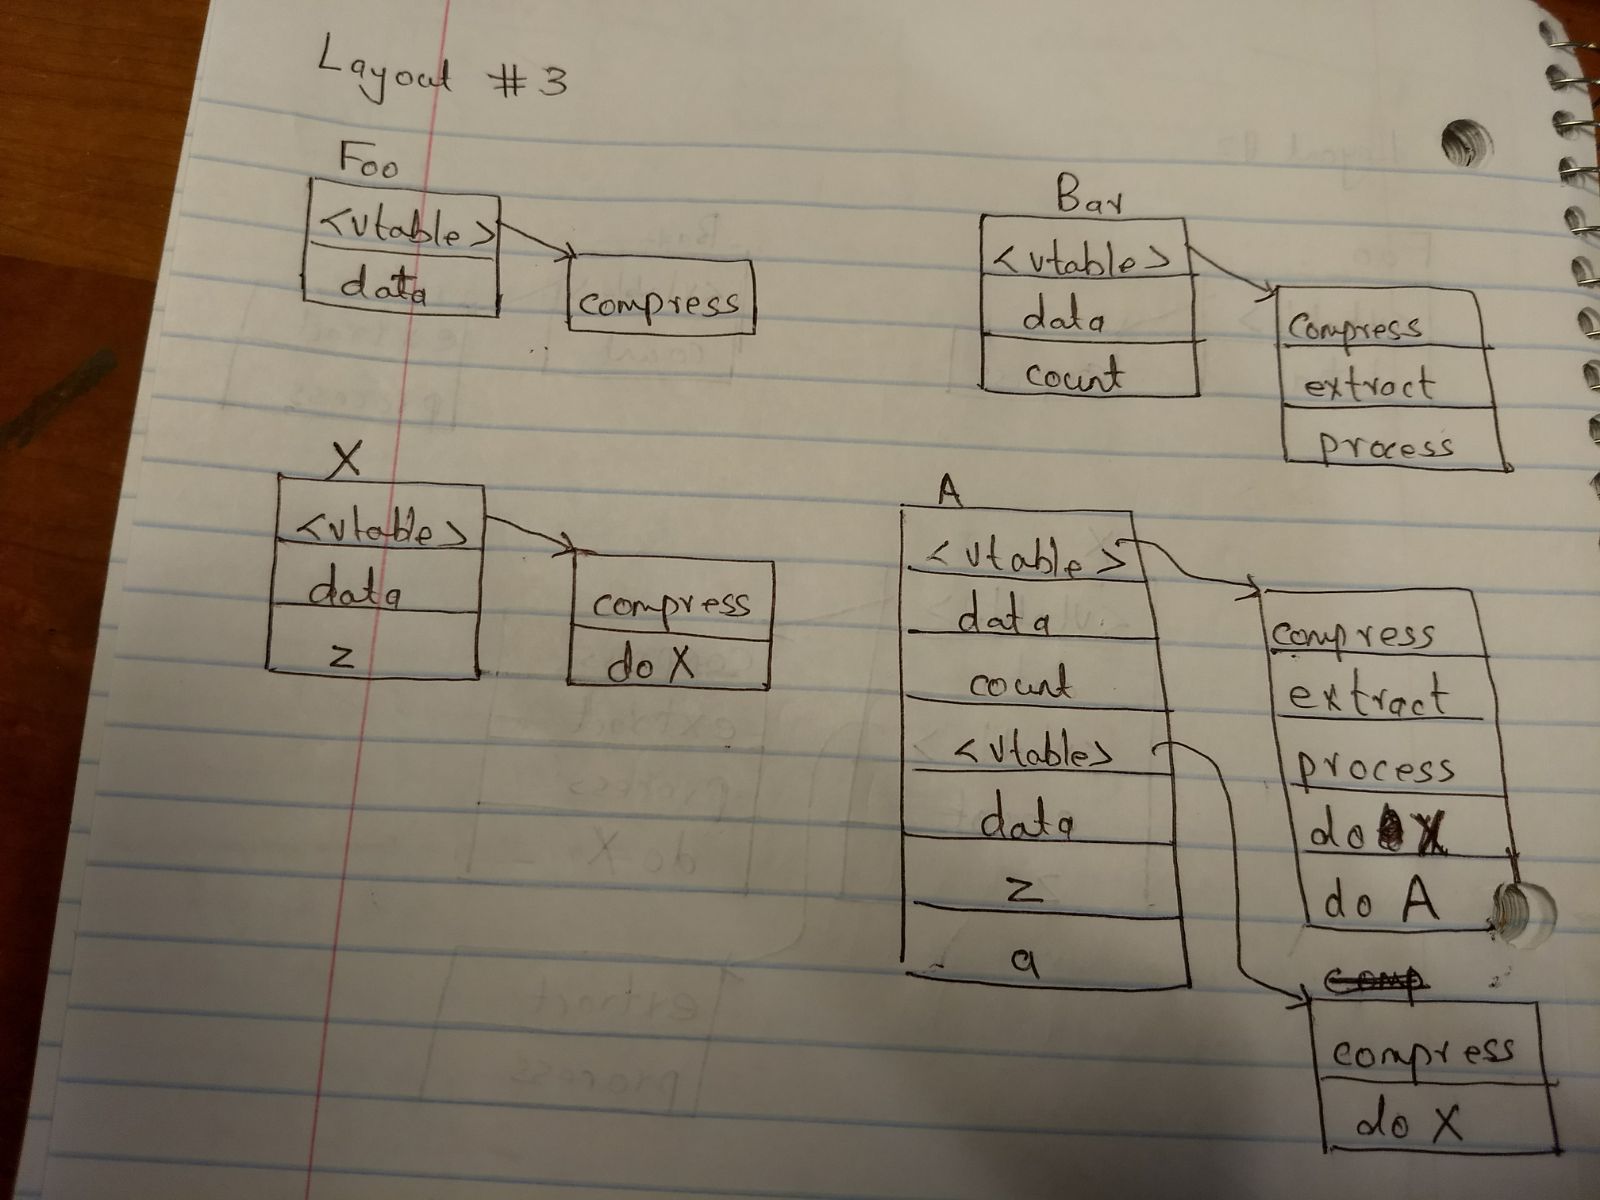 Layout #3
Foo
<vtable>
data
compress
Bar
<vtable>
data
count
compress
extract
process
X
<vtable>
data
z
compress
do X
A
<vtable>
data
count
<vtable>
data
z
a
compress
extract
process
do X
do A
comp
compress
do X